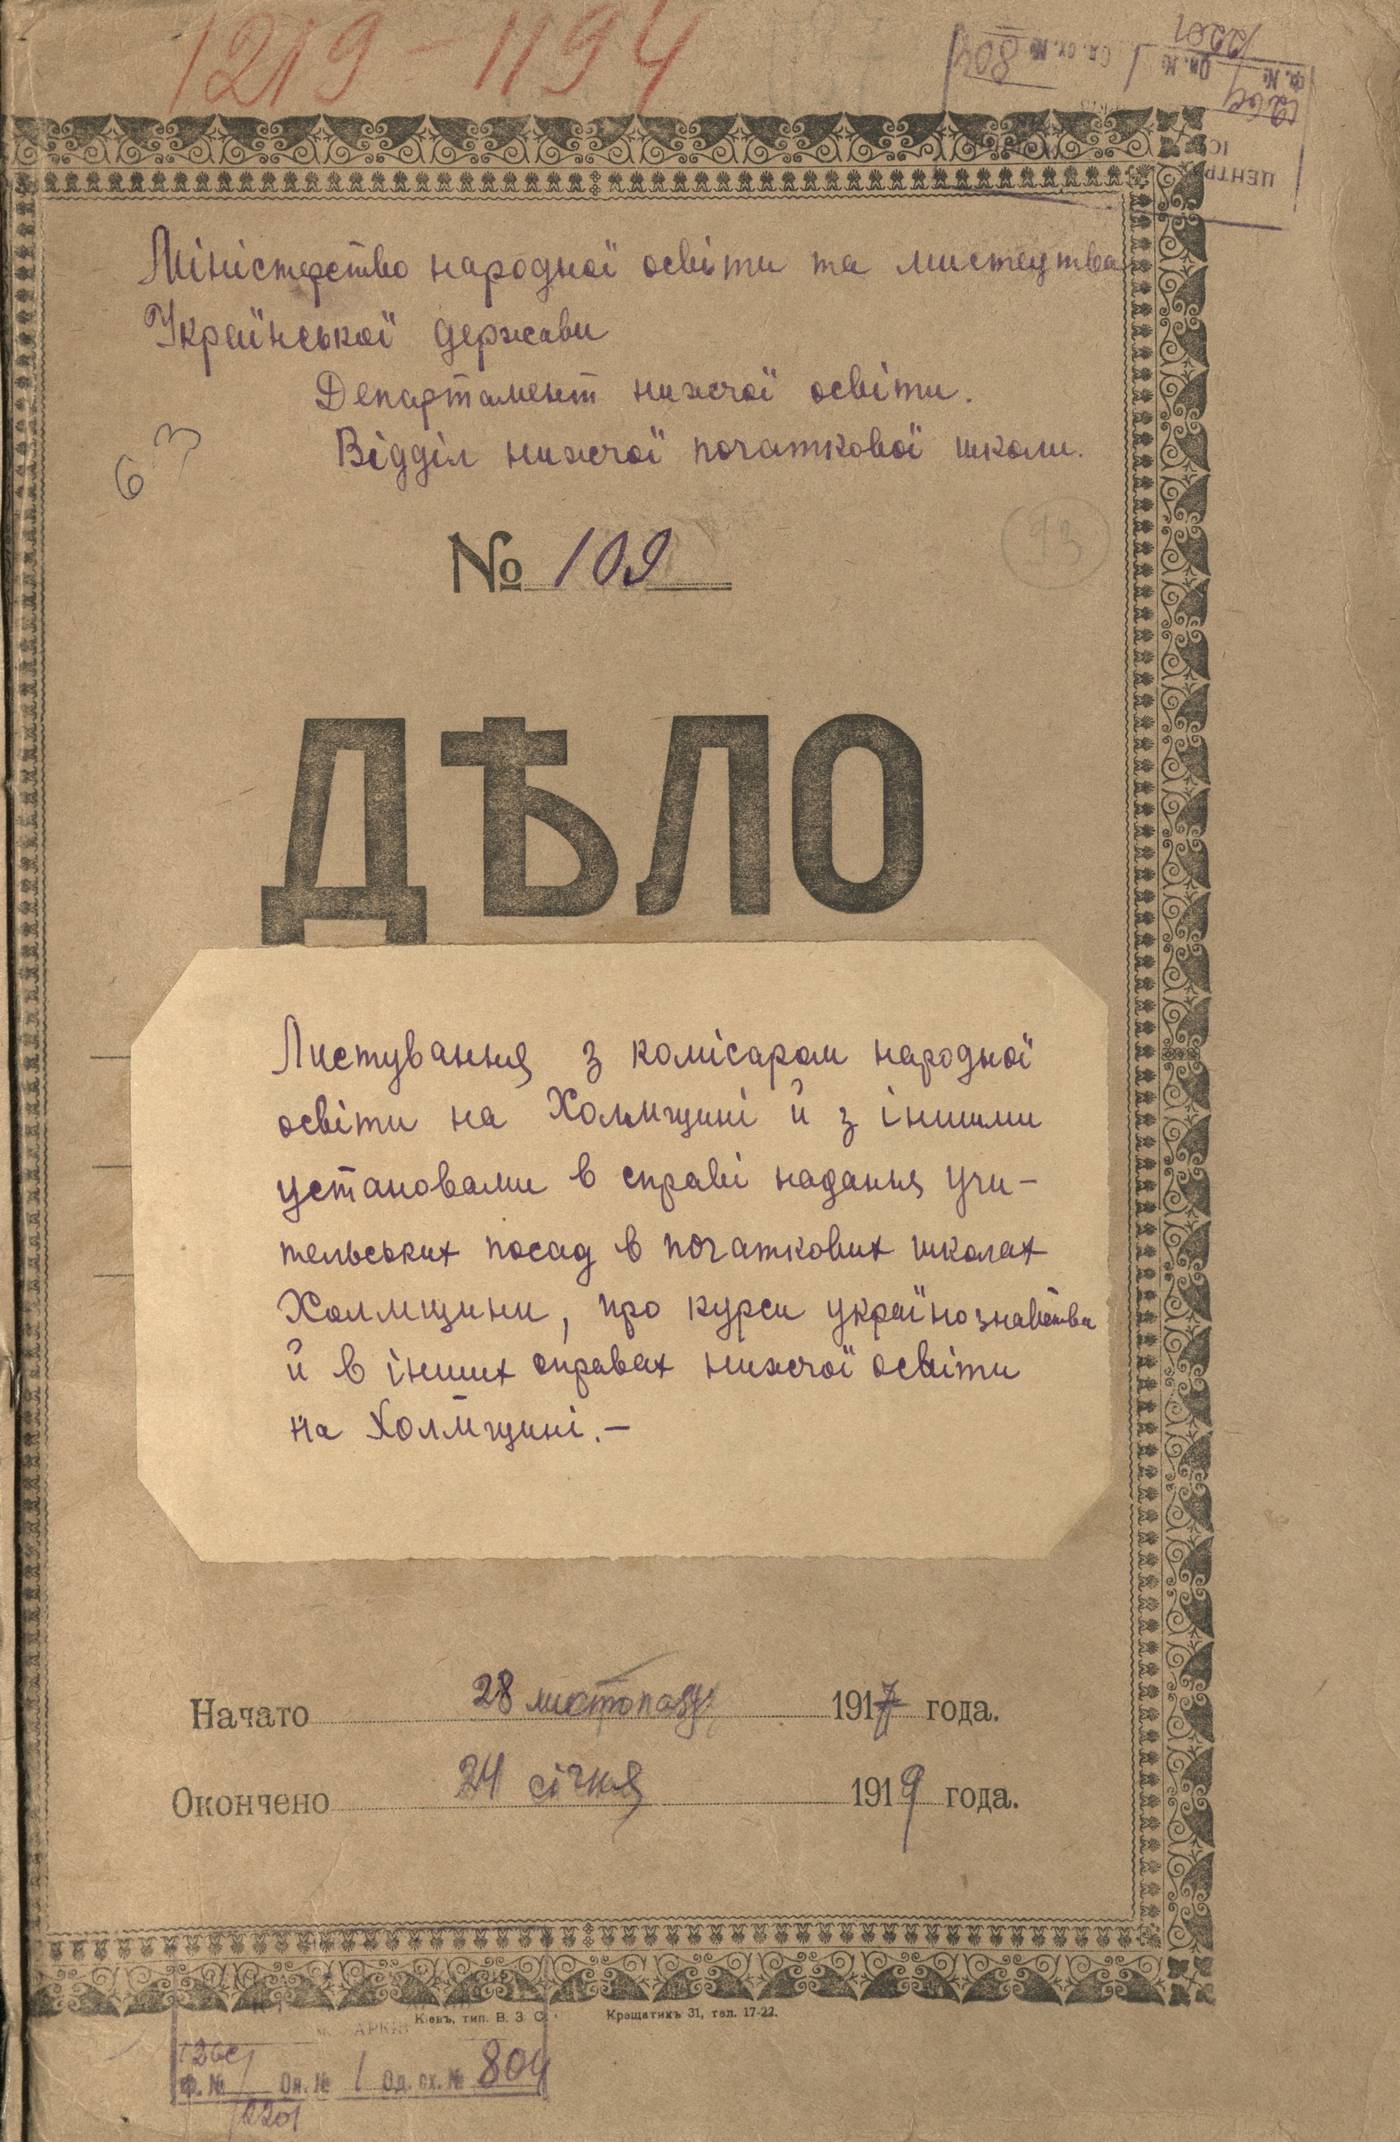 1219-1194
Міністерство народної освіти та мистецтва
Української держави
Департамент нижчої освіти.
Відділ нижчої початкової школи.
63
№ 109
13
ДѢЛО
Листування з комісаром народної
освіти на Холмщині й з іншими
установами в справі надання учи-
тельських посад в початкових школах
Холмщини, про курси українознавства
й в інших справах нижчої освіти
на Холмщині.—
Начато 28 листопаду 1917 года.
Окончено 24 січня 1919 года.
Кіевъ, тип. В. З. С. Крещатикъ 31, тел. 17-22.
Ф. № Оп. № 1 Од. сх. № 804
2201